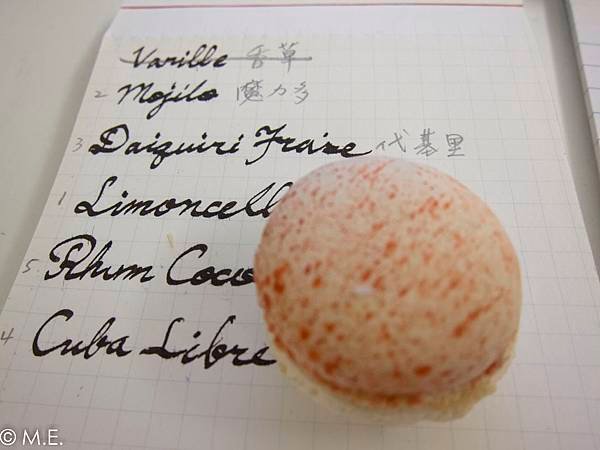 Varille 香草
2 Mojito 魔力多
3 Daiquiri Fraise 代基里
1 Limoncell
5 Rhum Coco
4 Cuba Libre
© M.E.